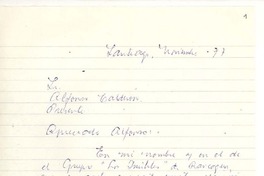 1
Santiago, Noviembre - 77
Sr.
Alfonso Calderón
Presente
Querido Alfonso:
En mi nombre y en el de
el Grupo "Los Inútiles" de Rancagua,